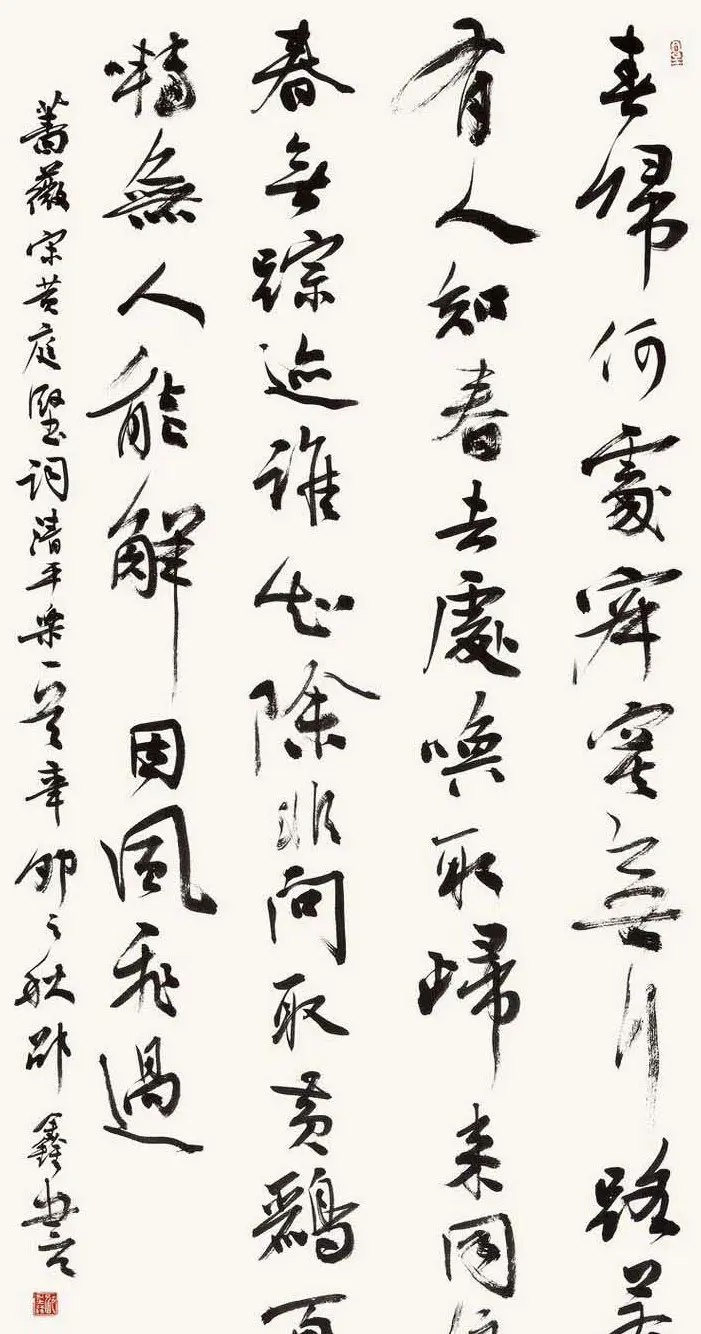 春歸何處寂寞無行路若
有人知春去處喚取歸來同住
春無踪迹誰知除非問取黄鸝百
囀無人能解因風飛過
薔薇宋黄庭堅詞清平樂一首辛卯之秋邵鑫書